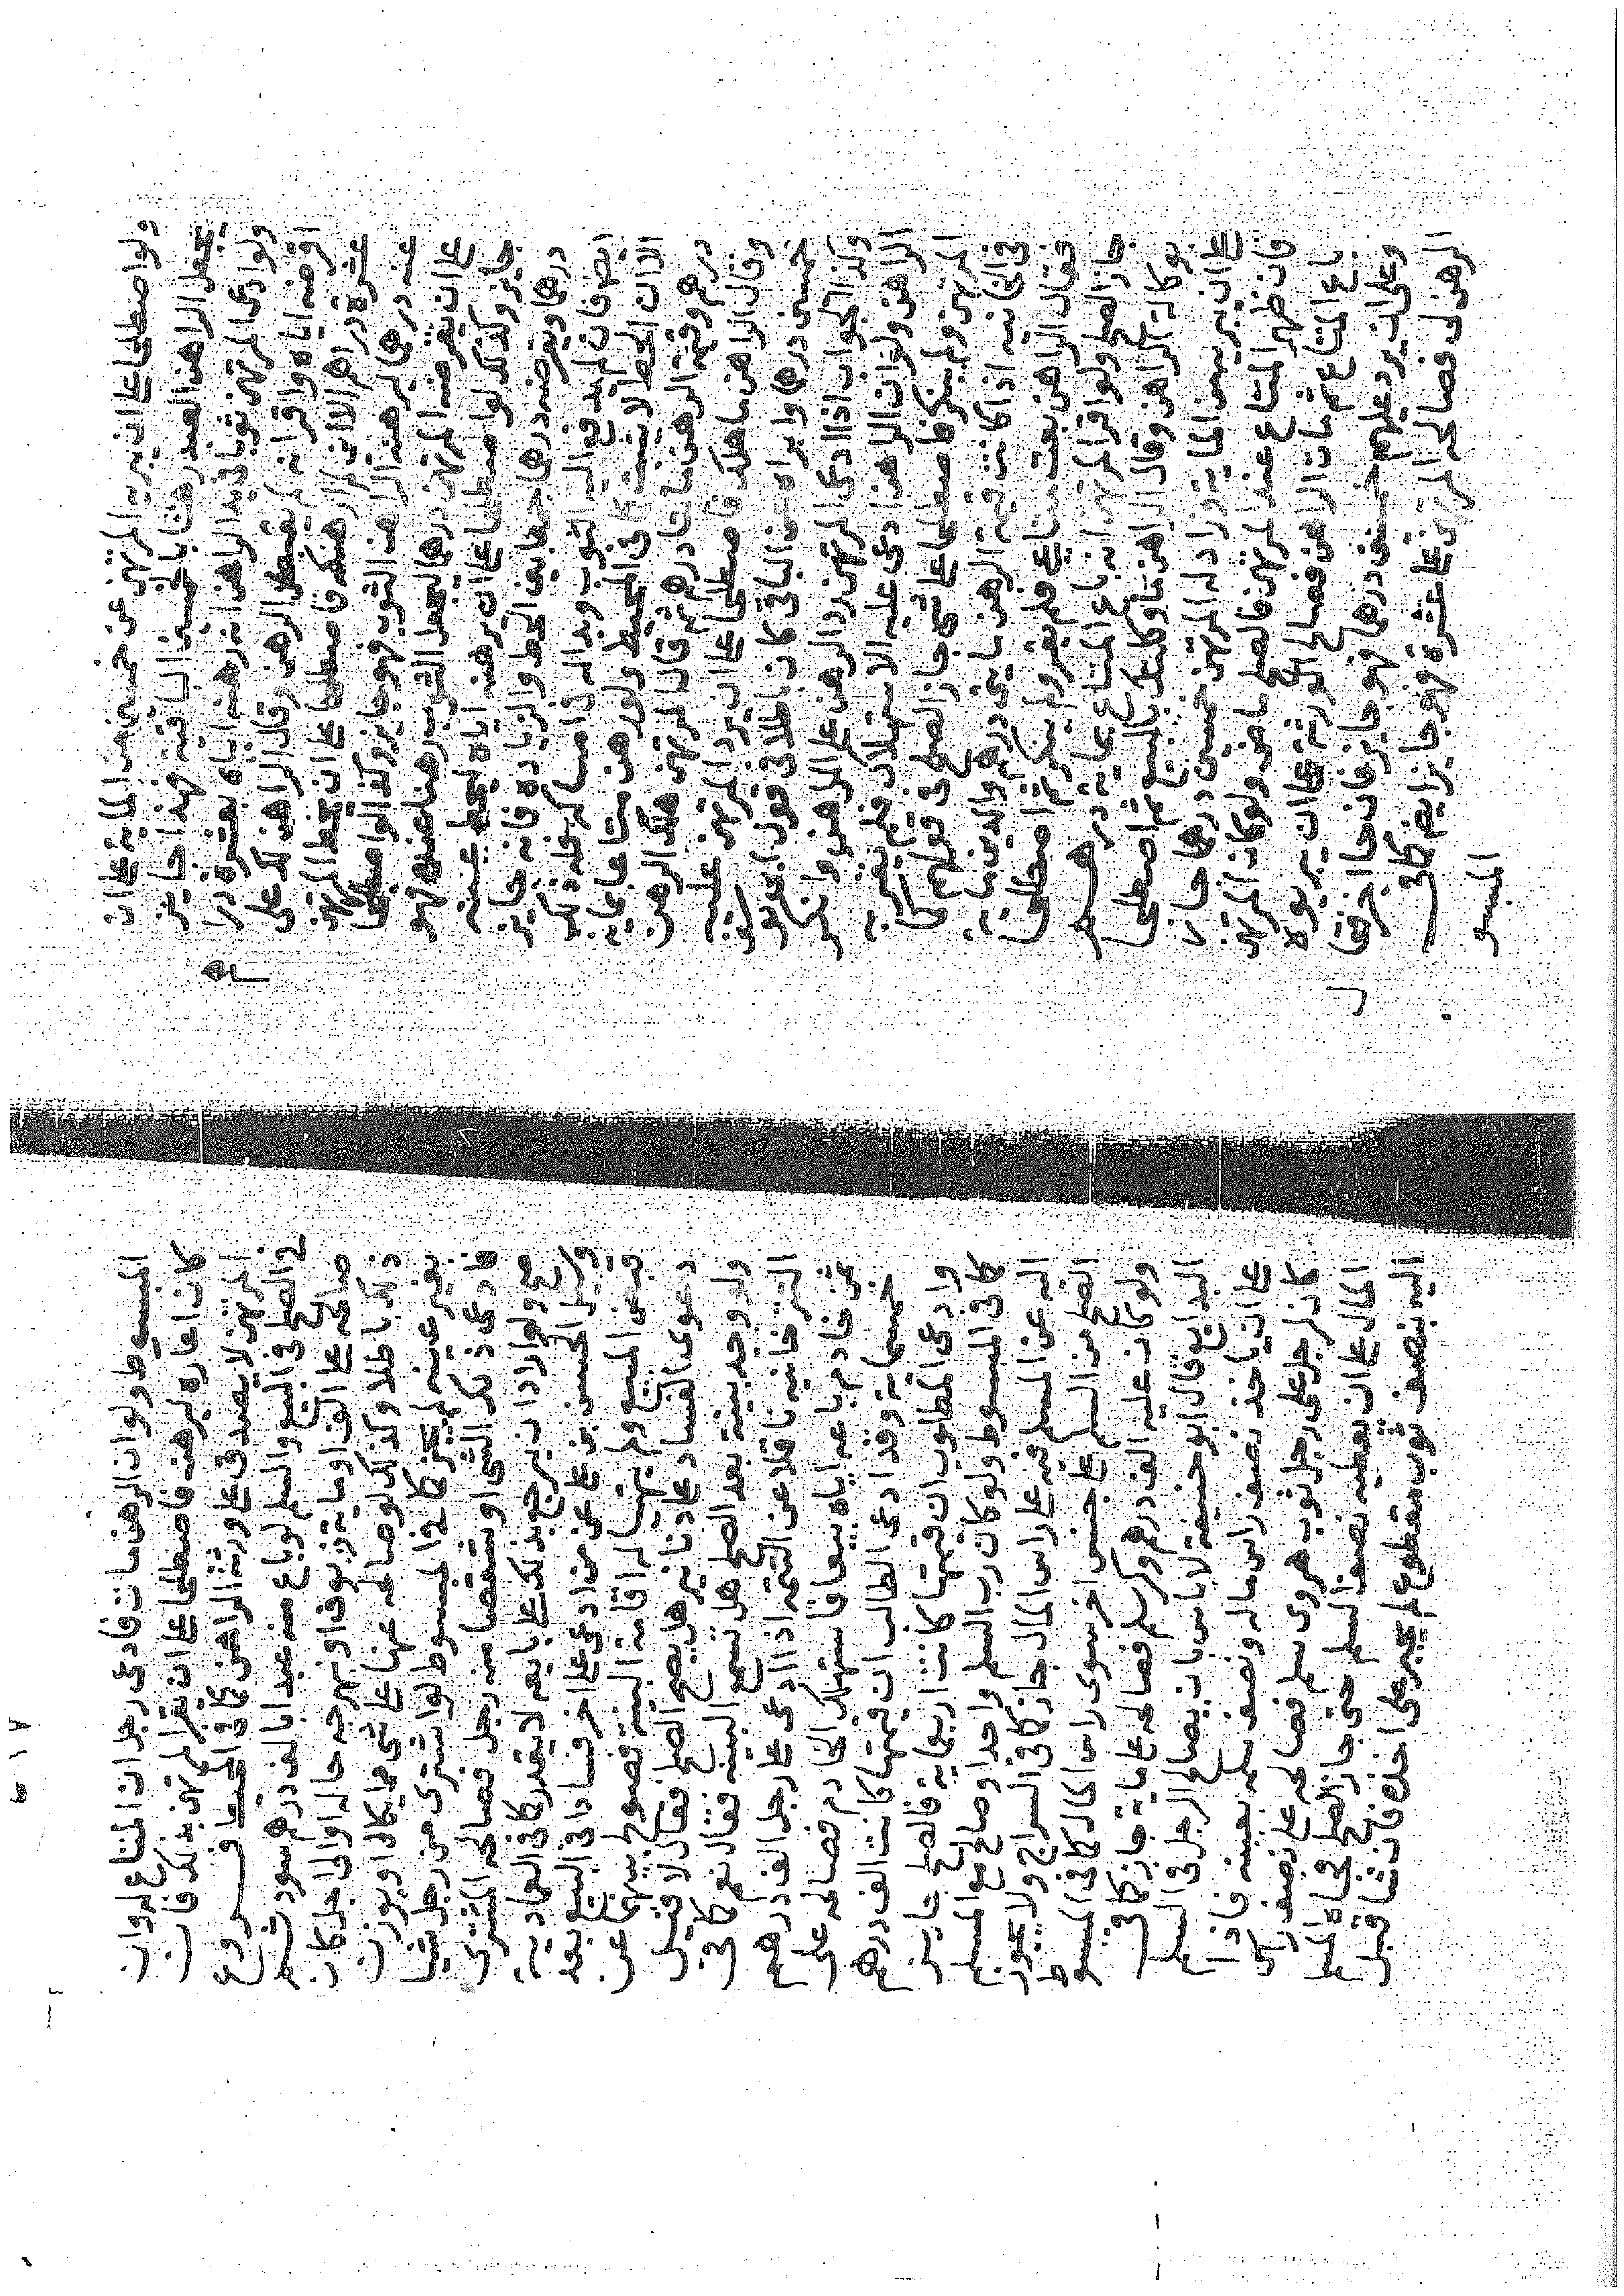 ولو اصطلحا على ان يبريه المرتهن عن خمسين من الماية على ان
يجعل الراهن العبد رهنا بالخمسين الباقية فهذا جايز
ولو ادعى المرتهن ثوبا في يد الراهن انه رهنه اياه بعشرة درا
هم
اقرضه اياه واقر انه لم يقبض الرهن وقال الراهن لك على
عشرة دراهم الا اني لم ارهنكه فاصطلحا على ان يحط المرتهن
عنه درهما ليرهنه الراهن الثوب فهو جايز وكذا لو اصطلحا
على ان يقرضه المرتهن درهما ليجعل الثوب رهنا عنده فهو
جايز وكذلك لو اصطلحا على ان يرهنه اياه ليحط عنه
درهما ويقرضه درهما جمعا بين الحط والزيادة فانه جايز
ايضا فان لم يدفع اليه الثوب وبدا له في امساكه فله ذلك
الا ان الحط لا يثبت كما في المحيط ولو رهن متاعا بماية
درهم وقيمة الرهن مايتا درهم ثم قال المرتهن هلك الرهن
وقال الراهن ما هلك فاصطلحا على ان يرد المرتهن عليه
خمسين درهما وابراه عن الباقي كان باطلا في قول ابي يوسف
وكذا الجواب اذا ادعى المرتهن رد الرهن على الراهن وانكر
الراهن ولو ان الراهن ادعى عليه الاستهلاك فلم يقر به
المرتهن ولم ينكر فاصطلحا على شي جاز الصلح في قولهم كما
في الخانية اذا كانت قيمة الرهن مايتي درهم والدين ماية
فقال الراهن بعت متاعي فلم يقر ولم ينكر ثم اصطلحا
جاز الصلح ولو اقر المرتهن انه باع المتاع بماية درهم
بوكالة الراهن وقال الراهن ما وكلتك بالبيع ثم اصطلحا
على ان يبريه من الماية وزاده المرتهن خمسين درهما جاز
فان ظهر المتاع عند المرتهن فالصلح ماض ولو كان المرتهن
باع المتاع ثم مات الراهن فصالح الورثة على ان يبريوه
وعلى ان يرد عليهم خمسين درهما فهو جايز فان جا اخر فقال
الرهن لي فصالحه المرتهن على عشرة فهو جايز ايضا كما في
المبسو
المبسوط ولو ان الرهن مات فادعى رجل ان المتاع له وانه
كان اعاره ليرهنه فاصطلحا على ان يقر المرتهن بذلك فان
المرتهن لا يصدق على ورثة الراهن كما في المحيط فروع
في الصلح في البيع والسلم لو باع منه عبدا بالف درهم سود ثم
صالحه على الف او ماية زيوفا او نبهرجة حالة او الى اجل كان
ذلك باطلا وكذلك لو صالحه عنها على شي مما يكال او يوزن
بغير عينه لم يجز كما في المبسوط لو اشترى من رجل شيا
فادعى ذلك الشي او شقصا منه رجل فصالحه المشتري
صح ولو اراد ان يرجع بذلك على بايعه لا يقدر كما في العمادية
وسئل الحسن بن علي عن من ادعى على اخر فسادا في البيع بعد
قبض المبيع ولم يتهيا له اقامة البينة فصولح بينهما عن
دعوى الفساد على دنانير هل يصح الصلح فقال لا قيل
ولو وجد بينة بعد الصلح هل تسمع البينة فقال نعم كما في
التتر خانية ناقلا عن اليتيمة اذا ادعى على رجل الف درهم
ثمن خادم باعه اياه بيعا فاستهلك الخادم فصالحه على
خمسماية وقد ادعى الطالب ان قيمتها كانت الف درهم
وادعى المطلوب ان قيمتها كانت اربعماية فالصلح جايز
كما في المبسوط ولو كان رب السلم واحدا وصالح مع المسلم
اليه عن المسلم فيه على راس المال جاز كما في السراج ولا يجوز
الصلح من السلم على جنس اخر سوى راس المال كما في المبسوط
ولو كان عليه الف درهم وكر سلم فصالحه على ماية جاز كما في
البدايع قال ابو حنيفة لا باس بان يصالح الرجل في السلم
على ان ياخذ نصف راس ماله ونصف سلمه بعينه فاذا
كان لرجل على رجل ثوب هروي سلم فصالحه على نصف راس
المال على ان يعطيه نصف السلم حتى جاز الصلح فجاه المسلم
اليه بنصف ثوب مقطوع لم يجبر على اخذه فان شا قبل
٢١٨